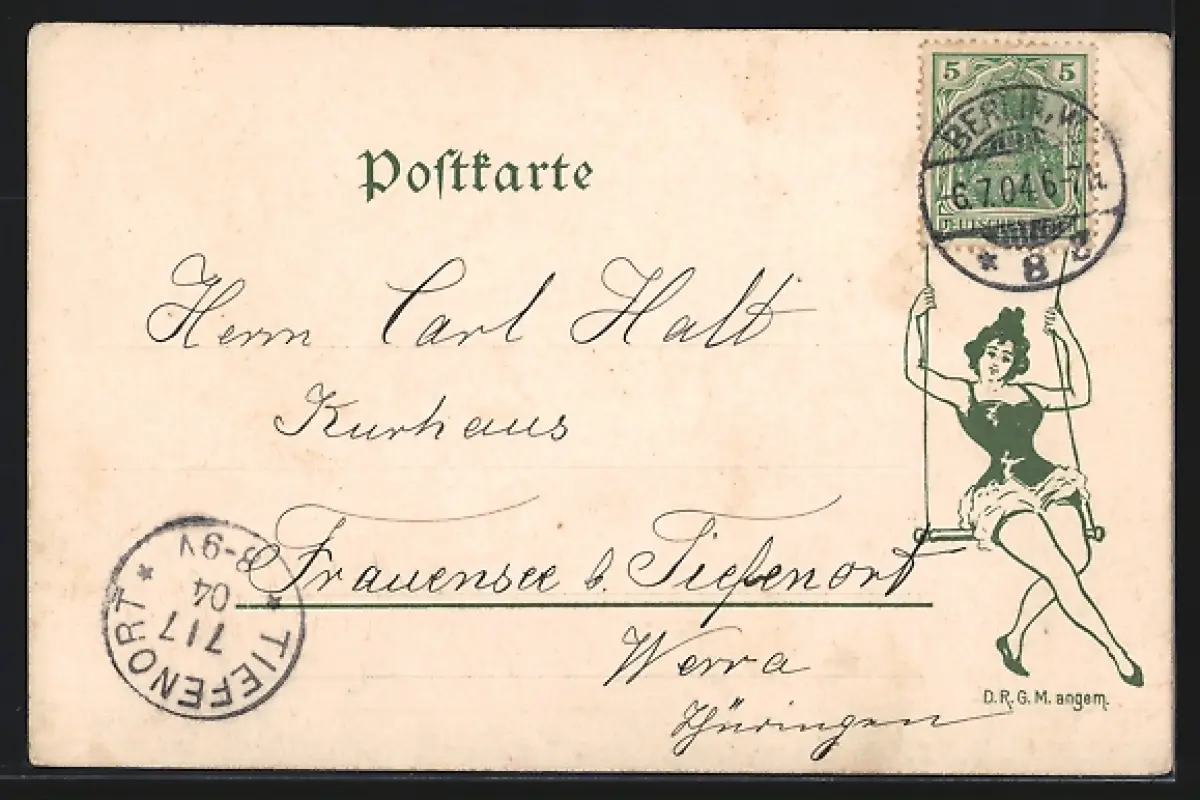 5 5
BERLIN, W.
-6.7.04 6-7N.
* 8 c
Postkarte
Herrn Carl Halt
Kurhaus
Frauensee b. Tiefenort
Werra
Thüringen
* TIEFENORT *
7 1 7
04
8-9V
D.R.G.M. angem.